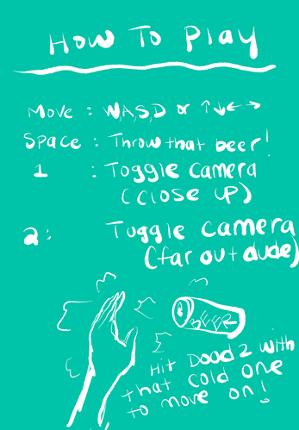 How To Play
Move : WASD or ↑↓←→
Space : Throw that beer!
1 : Toggle Camera
(close up)
2: Toggle camera
(far out dude)
BEER
Hit Dood2 with
that cold one
to move on!